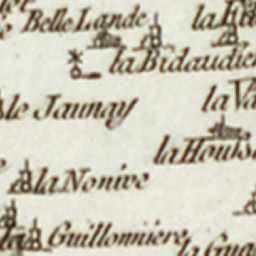 Belle Lande
la Bidaudie
le Jaunay
la Va
la Hous
la Nonive
la Guillonniere
la Gua